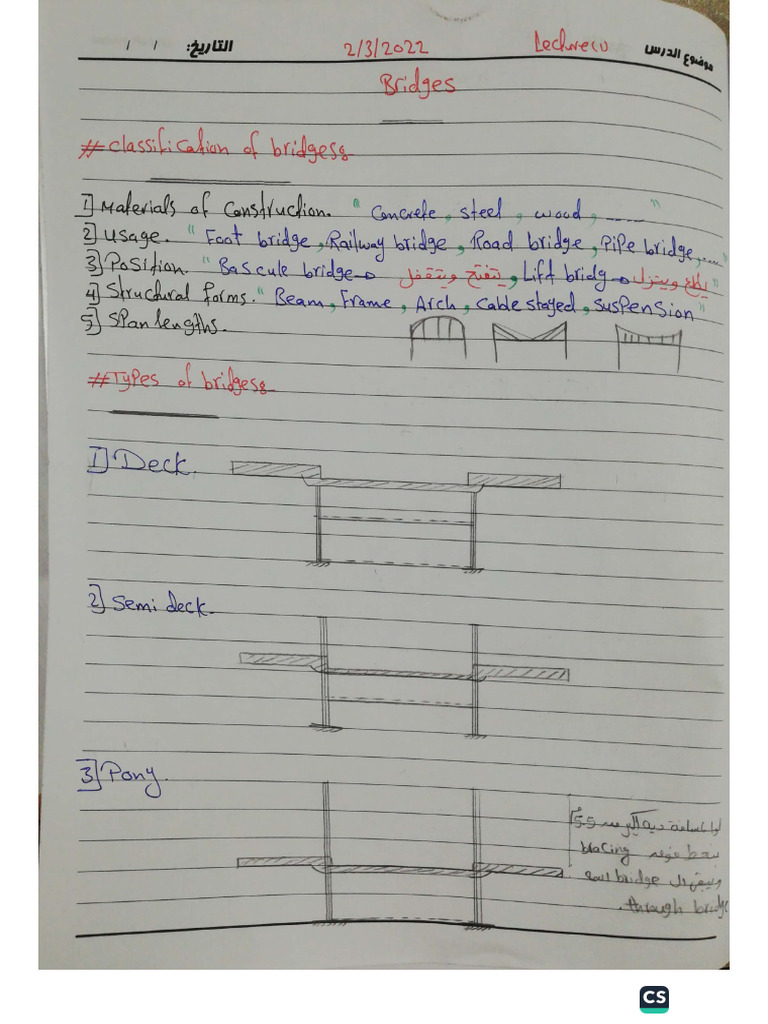 موضوع الدرس Lecture(1) 2/3/2022 التاريخ: / /
Bridges
# Classification of bridges:
1] Materials of Construction. "Concrete, steel, wood, ----"
2] Usage. "Foot bridge, Railway bridge, Road bridge, Pipe bridge, ...."
3] Position. "Bascule bridge → يتفتح ويتقفل, Lift bridg → يطلع وينزل"
4] Structural forms. "Beam, Frame, Arch, Cable stayed, Suspension"
5] Span lengths.
# Types of bridges:
1] Deck.
2] Semi deck.
3] Pony.
لو المسافة ديه أكبر من 5.5
بنحط فوقهم bracing
ويبقى ال bridge اسمه
through bridge.
CS